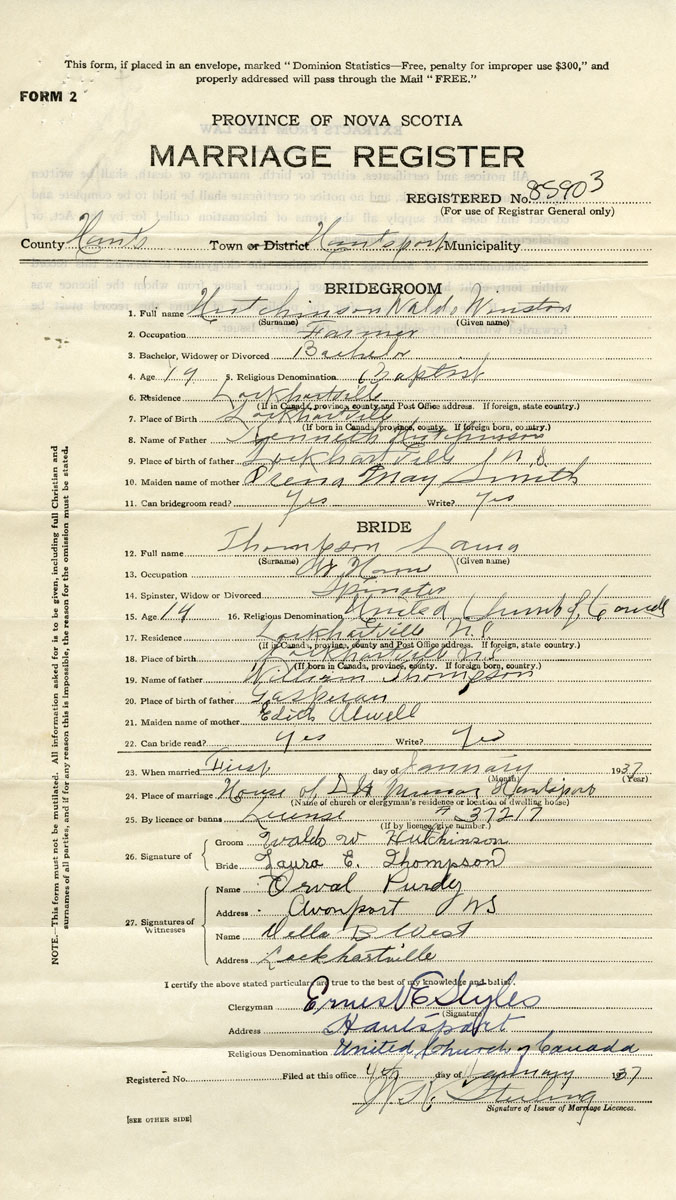 This form, if placed in an envelope, marked “ Dominion Statistics—Free, penalty for improper use $300,” and
properly addressed will pass through the Mail “ FREE.”
FORM 2
PROVINCE OF NOVA SCOTIA
MARRIAGE REGISTER
REGISTERED No. 85903
(For use of Registrar General only)
County Hants Town or District Hantsport Municipality
BRIDEGROOM
1. Full name Hutchinson Waldo Winston
(Surname) (Given name)
2. Occupation Farmer
3. Bachelor, Widower or Divorced Bachelor
4. Age 19 5. Religious Denomination Baptist
6. Residence Lockhartville
(If in Canada, province, county and Post Office address. If foreign, state country.)
7. Place of Birth Lockhartville
(If born in Canada, province, county. If foreign born, country.)
8. Name of Father Kenneth Hutchinson
9. Place of birth of father Lockhartville N.S
10. Maiden name of mother May Smith
11. Can bridegroom read? Yes Write? Yes
BRIDE
12. Full name Thompson Laura
(Surname) (Given name)
13. Occupation At Home
14. Spinster, Widow or Divorced Spinster
15. Age 19 16. Religious Denomination United
17. Residence Lockhartville N.S
(If in Canada, province, county and Post Office address. If foreign, state country.)
18. Place of birth Lockhartville N.S
(If born in Canada, province, county. If foreign born, country.)
19. Name of father William Thompson
20. Place of birth of father
21. Maiden name of mother Edith
22. Can bride read? Yes Write? Yes
23. When married First day of January 1937
(Month) (Year)
24. Place of marriage House of Hantsport
(Name of church or clergyman's residence or location of dwelling house)
25. By licence or banns License # 37217
(If by licence, give number.)
26. Signature of
Groom Waldo W Hutchinson
Bride Laura E. Thompson
27. Signatures of Witnesses
Name Orval Purdy
Address Avonport NS
Name Della B West
Address Lockhartville
I certify the above stated particulars are true to the best of my knowledge and belief.
Clergyman Ernest E Styles
(Signature)
Address Hantsport
Religious Denomination United Church of Canada
Registered No. Filed at this office 4th day of January 1937
Sterling
Signature of Issuer of Marriage Licences.
[SEE OTHER SIDE]
NOTE.—This form must not be mutilated. All information asked for is to be given, including full Christian and
surnames of all parties, and if for any reason this is impossible, the reason for the omission must be stated.